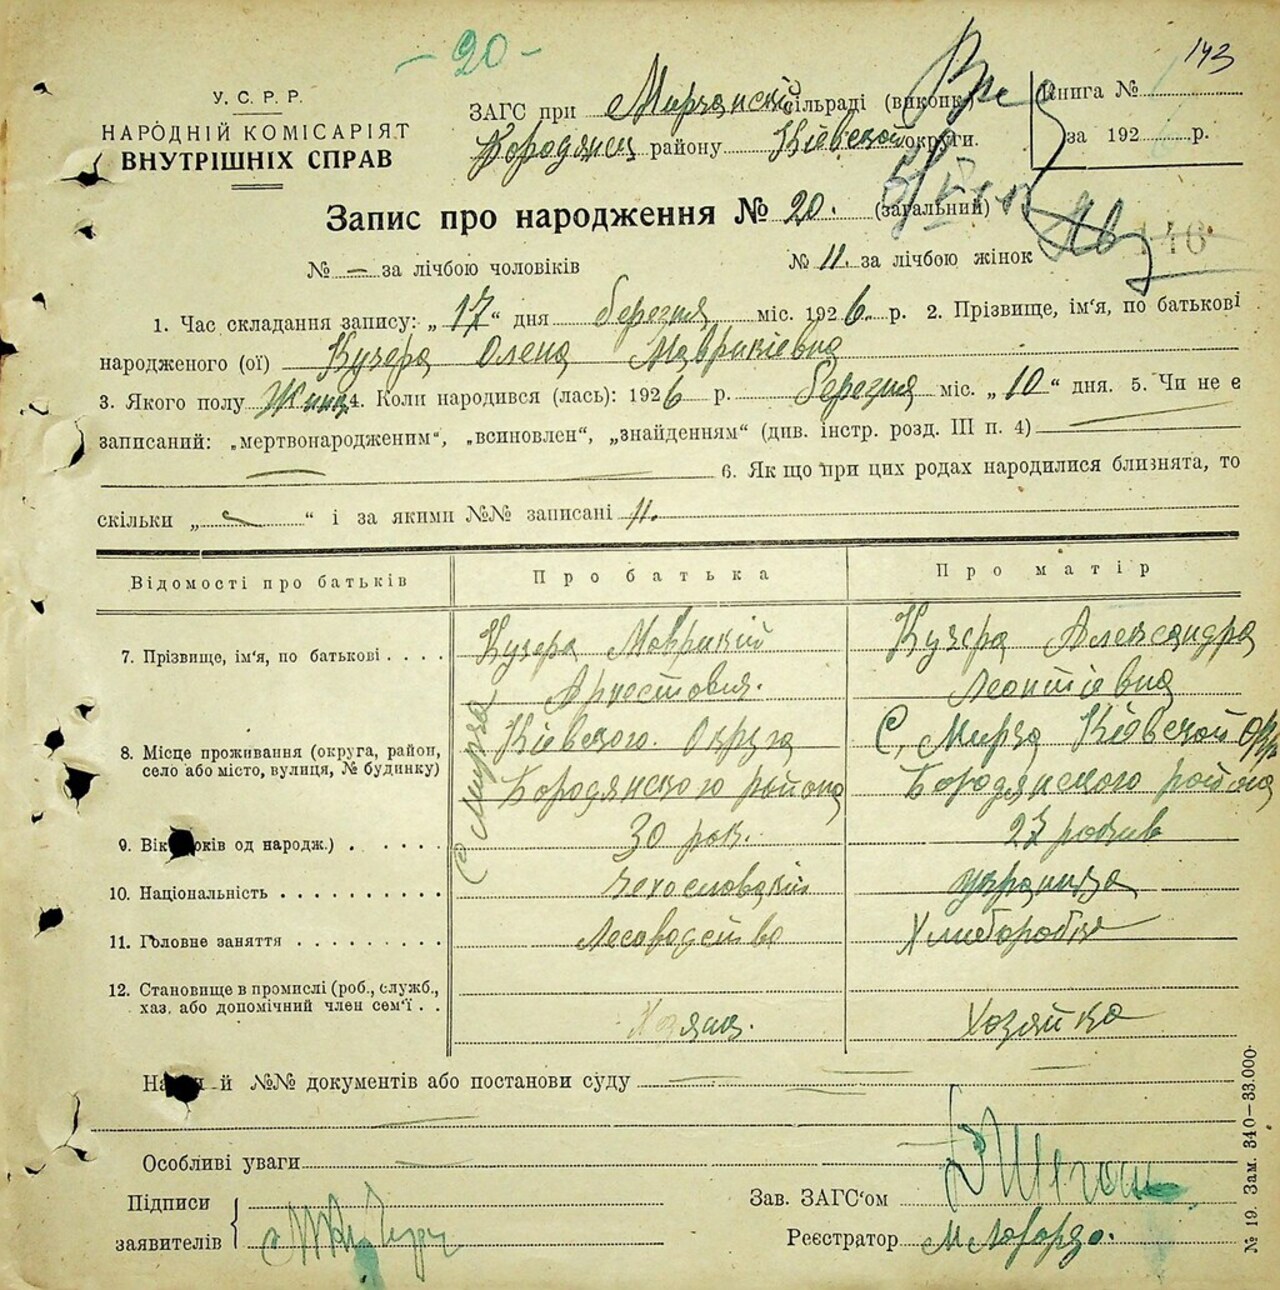 - 20 -
143
У. С. Р. Р.
НАРОДНІЙ КОМІСАРІЯТ
ВНУТРІШНІХ СПРАВ
ЗАГС при Мирчанскі сільраді (виконк.)
Бородянск району Київской округи.
Книга №
за 192 р.
Запис про народження № 20. (загальний)
146
№ — за лічбою чоловіків № 11. за лічбою жінок
1. Час складання запису: „17“ дня березня міс. 1926. р. 2. Прізвище, ім‘я, по батькові
народженого (ої) Кучера Олена Маврикіевна
3. Якого полу Жинц. 4. Коли народився (лась): 1926 р. березня міс. „10“ дня. 5. Чи не є
записаний: „мертвонародженим“, „всиновлен“, „знайденням“ (див. інстр. розд. III п. 4) —
— — 6. Як що при цих родах народилися близнята, то
скільки „ — “ і за якими №№ записані 11.
Відомості про батьків Про батька Про матір
7. Прізвище, ім‘я, по батькові . . . . Кучера Маврикій Кучера Александра
Арнестовия. Леонтіевна
8. Місце проживання (округа, район, село або місто, вулиця, № будинку)
С Мирча Кіевского Округа С. Мирча Кіевской Окр
Бородянского района Бородянского района
9. Вік років од народж.) . . . . . 30 рок. 27 років
10. Національність . . . . . . . . . . Чехословакій украинка
11. Головне заняття . . . . . . . . . Лесоводство Хлиборобка
12. Становище в промислі (роб., служб.,
хаз. або допомічний член сем‘ї . . Хозяин. Хозяйка
На й №№ документів або постанови суду —
Особливі уваги —
Підписи
заявителів
Зав. ЗАГС‘ом
Реєстратор М
№ 19. Зам. 340—33.000.